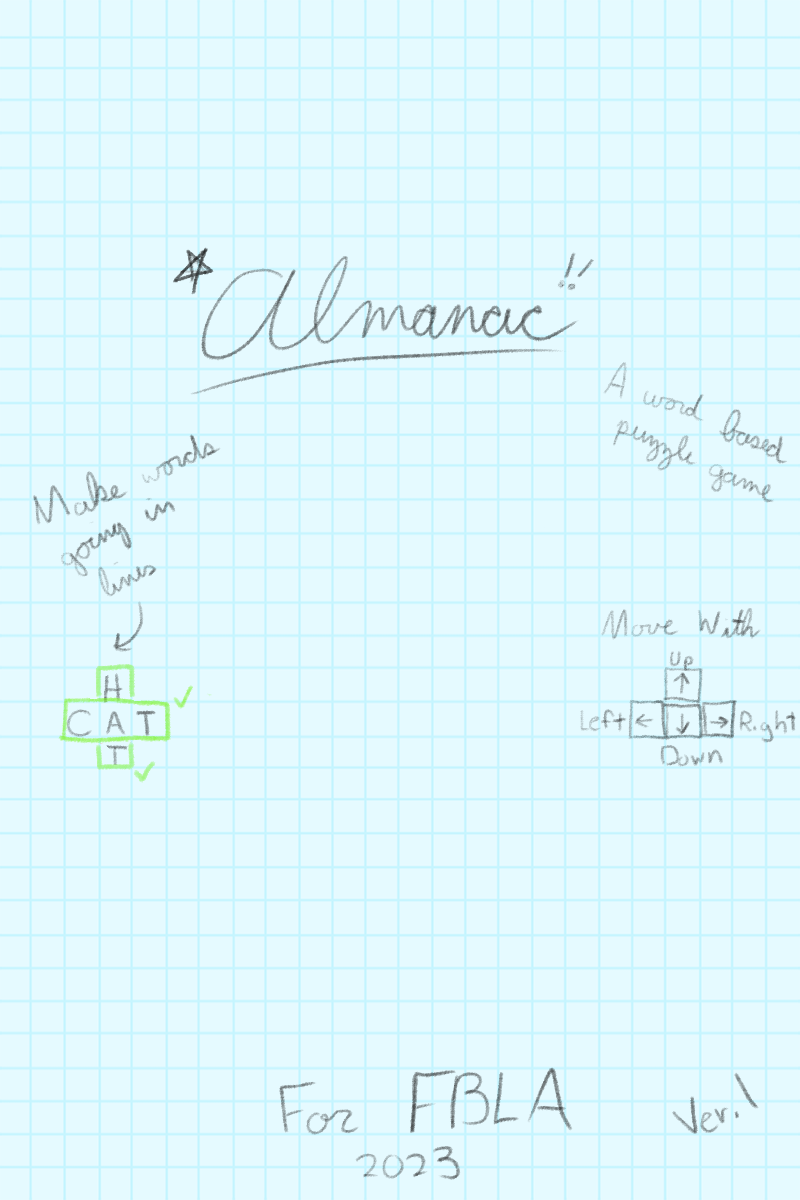 Almanac!!
A word based
puzzle game
Make words
going in
lines
H
CAT
T
Move With
Up
↑
Left ← ↓ → Right
Down
For FBLA
2023
Ver. 1